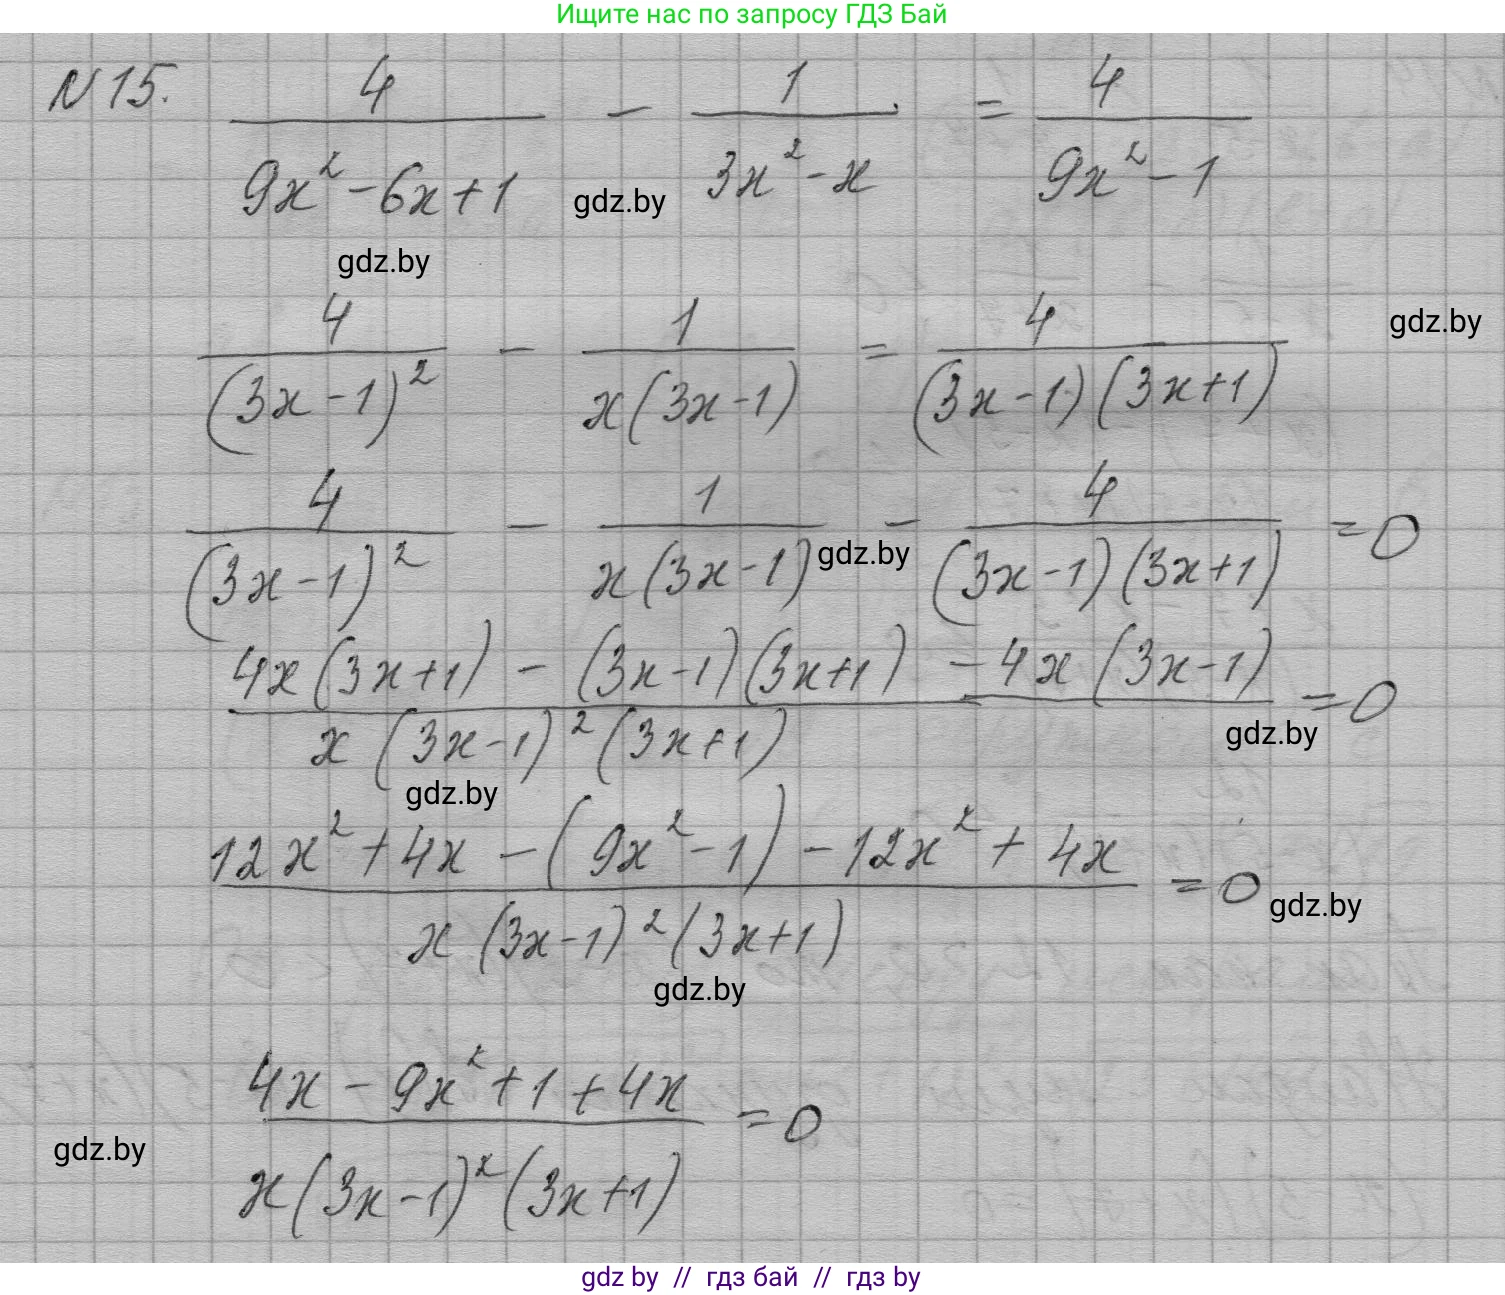 Ищите нас по запросу ГДЗ Бай
N 15. 4/(9x² - 6x + 1) - 1/(3x² - x) = 4/(9x² - 1)
gdz.by
gdz.by
4/(3x - 1)² - 1/(x(3x - 1)) = 4/((3x - 1)(3x + 1))
gdz.by
4/(3x - 1)² - 1/(x(3x - 1)) - 4/((3x - 1)(3x + 1)) = 0
gdz.by
(4x(3x + 1) - (3x - 1)(3x + 1) - 4x(3x - 1))/(x(3x - 1)²(3x + 1)) = 0
gdz.by
gdz.by
(12x² + 4x - (9x² - 1) - 12x² + 4x)/(x(3x - 1)²(3x + 1)) = 0
gdz.by
gdz.by
(4x - 9x² + 1 + 4x)/(x(3x - 1)²(3x + 1)) = 0
gdz.by
gdz by // гдз бай // гдз by